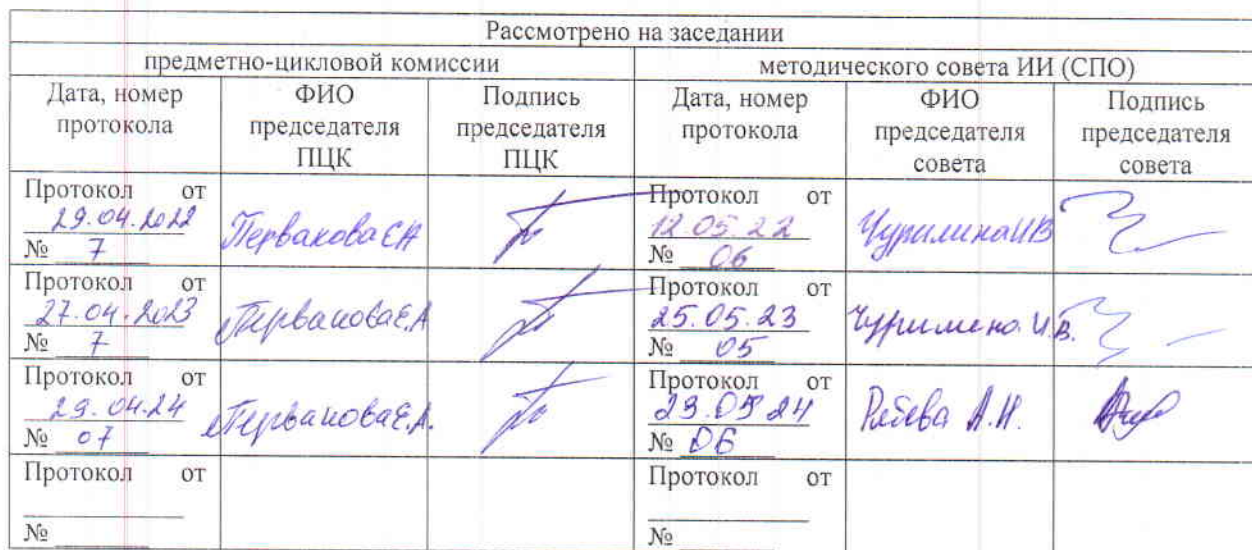 Рассмотрено на заседании
предметно-цикловой комиссии методического совета ИИ (СПО)
Дата, номер протокола ФИО председателя ПЦК Подпись председателя ПЦК Дата, номер протокола ФИО председателя совета Подпись председателя совета
Протокол от
29.04.2022
№ 7
Первакова Е.А
Протокол от
12.05.22
№ 06
Чурилина И.В
Протокол от
27.04.2023
№ 7
Первакова Е.А
Протокол от
25.05.23
№ 05
Чурилина И.В.
Протокол от
29.04.24
№ 07
Первакова Е.А.
Протокол от
23.05 24
№ 06
А.Н.
Протокол от
№
Протокол от
№